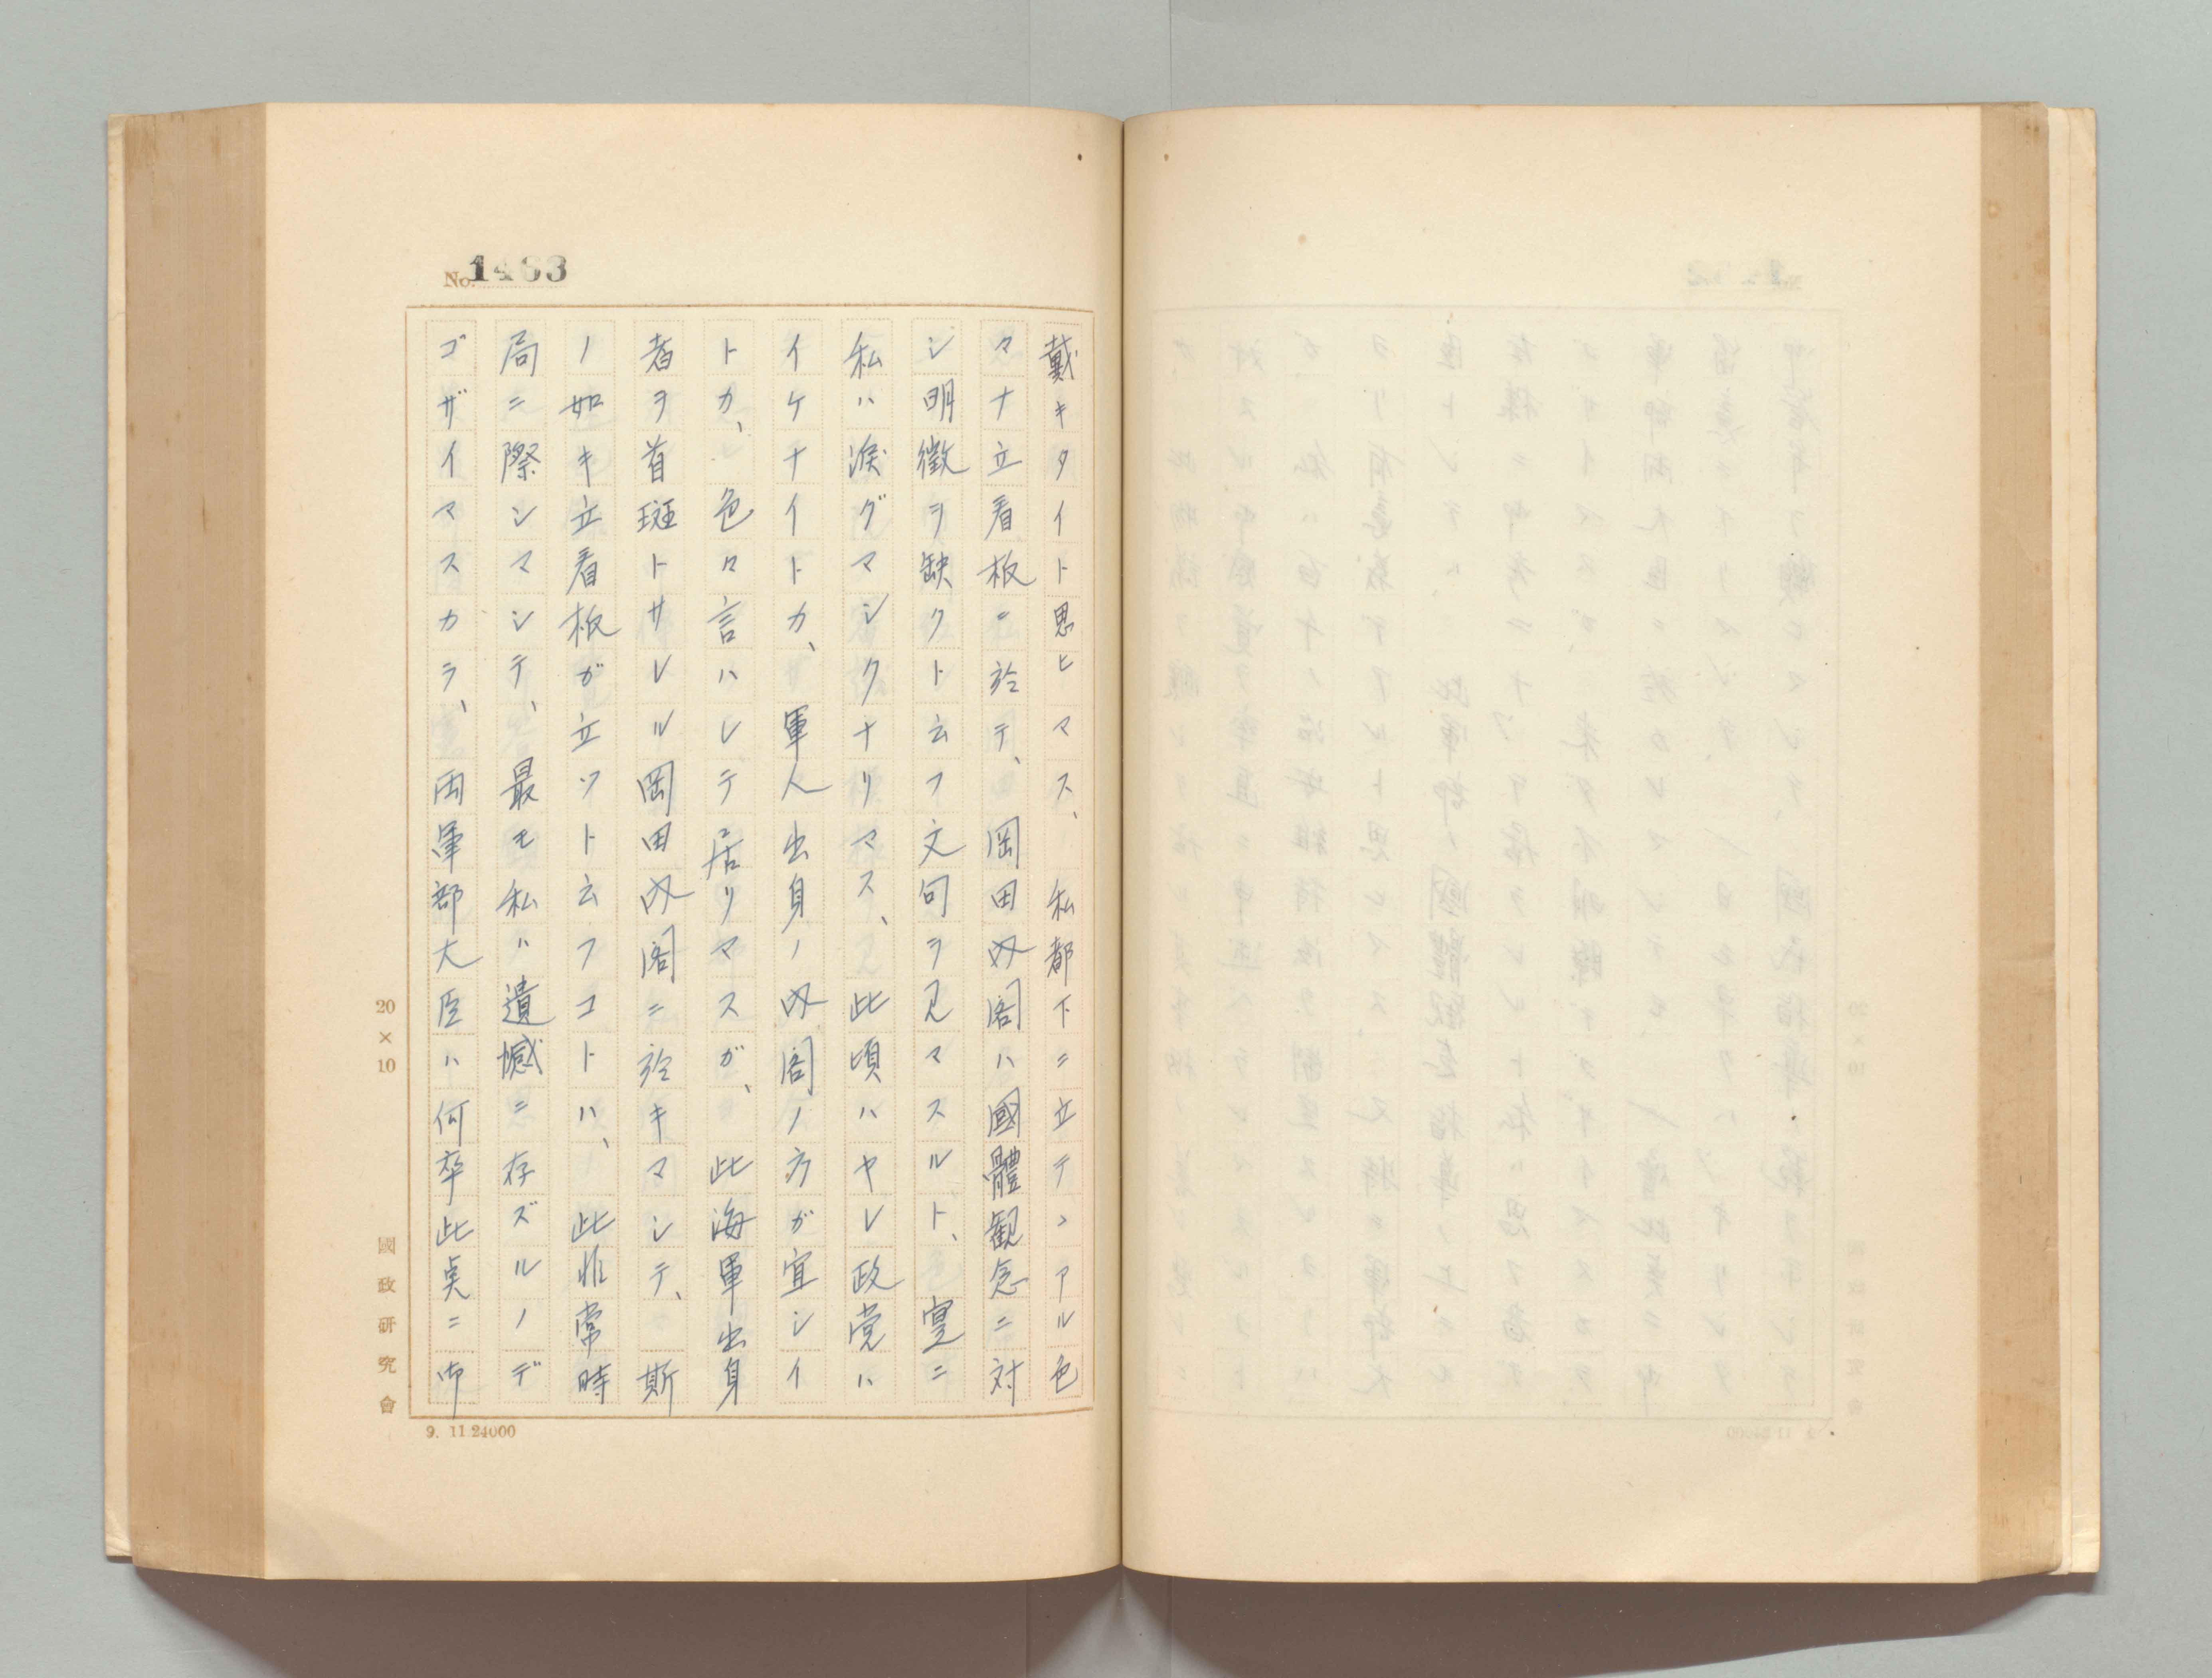 No. 1463
戴キタイト思ヒマス、私都下ニ立テヽアル色
々ナ立看板ニ於テ、岡田内閣ハ國體観念ニ対
シ明徴ヲ缺クト云フ文句ヲ見マスルト、寔ニ
私ハ涙グマシクナリマス、此頃ハヤレ政党ハ
イケナイトカ、軍人出身ノ内閣ノ方ガ宜シイ
トカ、色々言ハレテ居リマスガ、此海軍出身
者ヲ首班トサレル岡田内閣ニ於キマシテ、斯
ノ如キ立看板ガ立ツト云フコトハ、此非常時
局ニ際シマシテ、最モ私ハ遺憾ニ存ズルノデ
ゴザイマスカラ、両軍部大臣ハ何卒此点ニ御
20×10
國政研究會
9. 11 24000